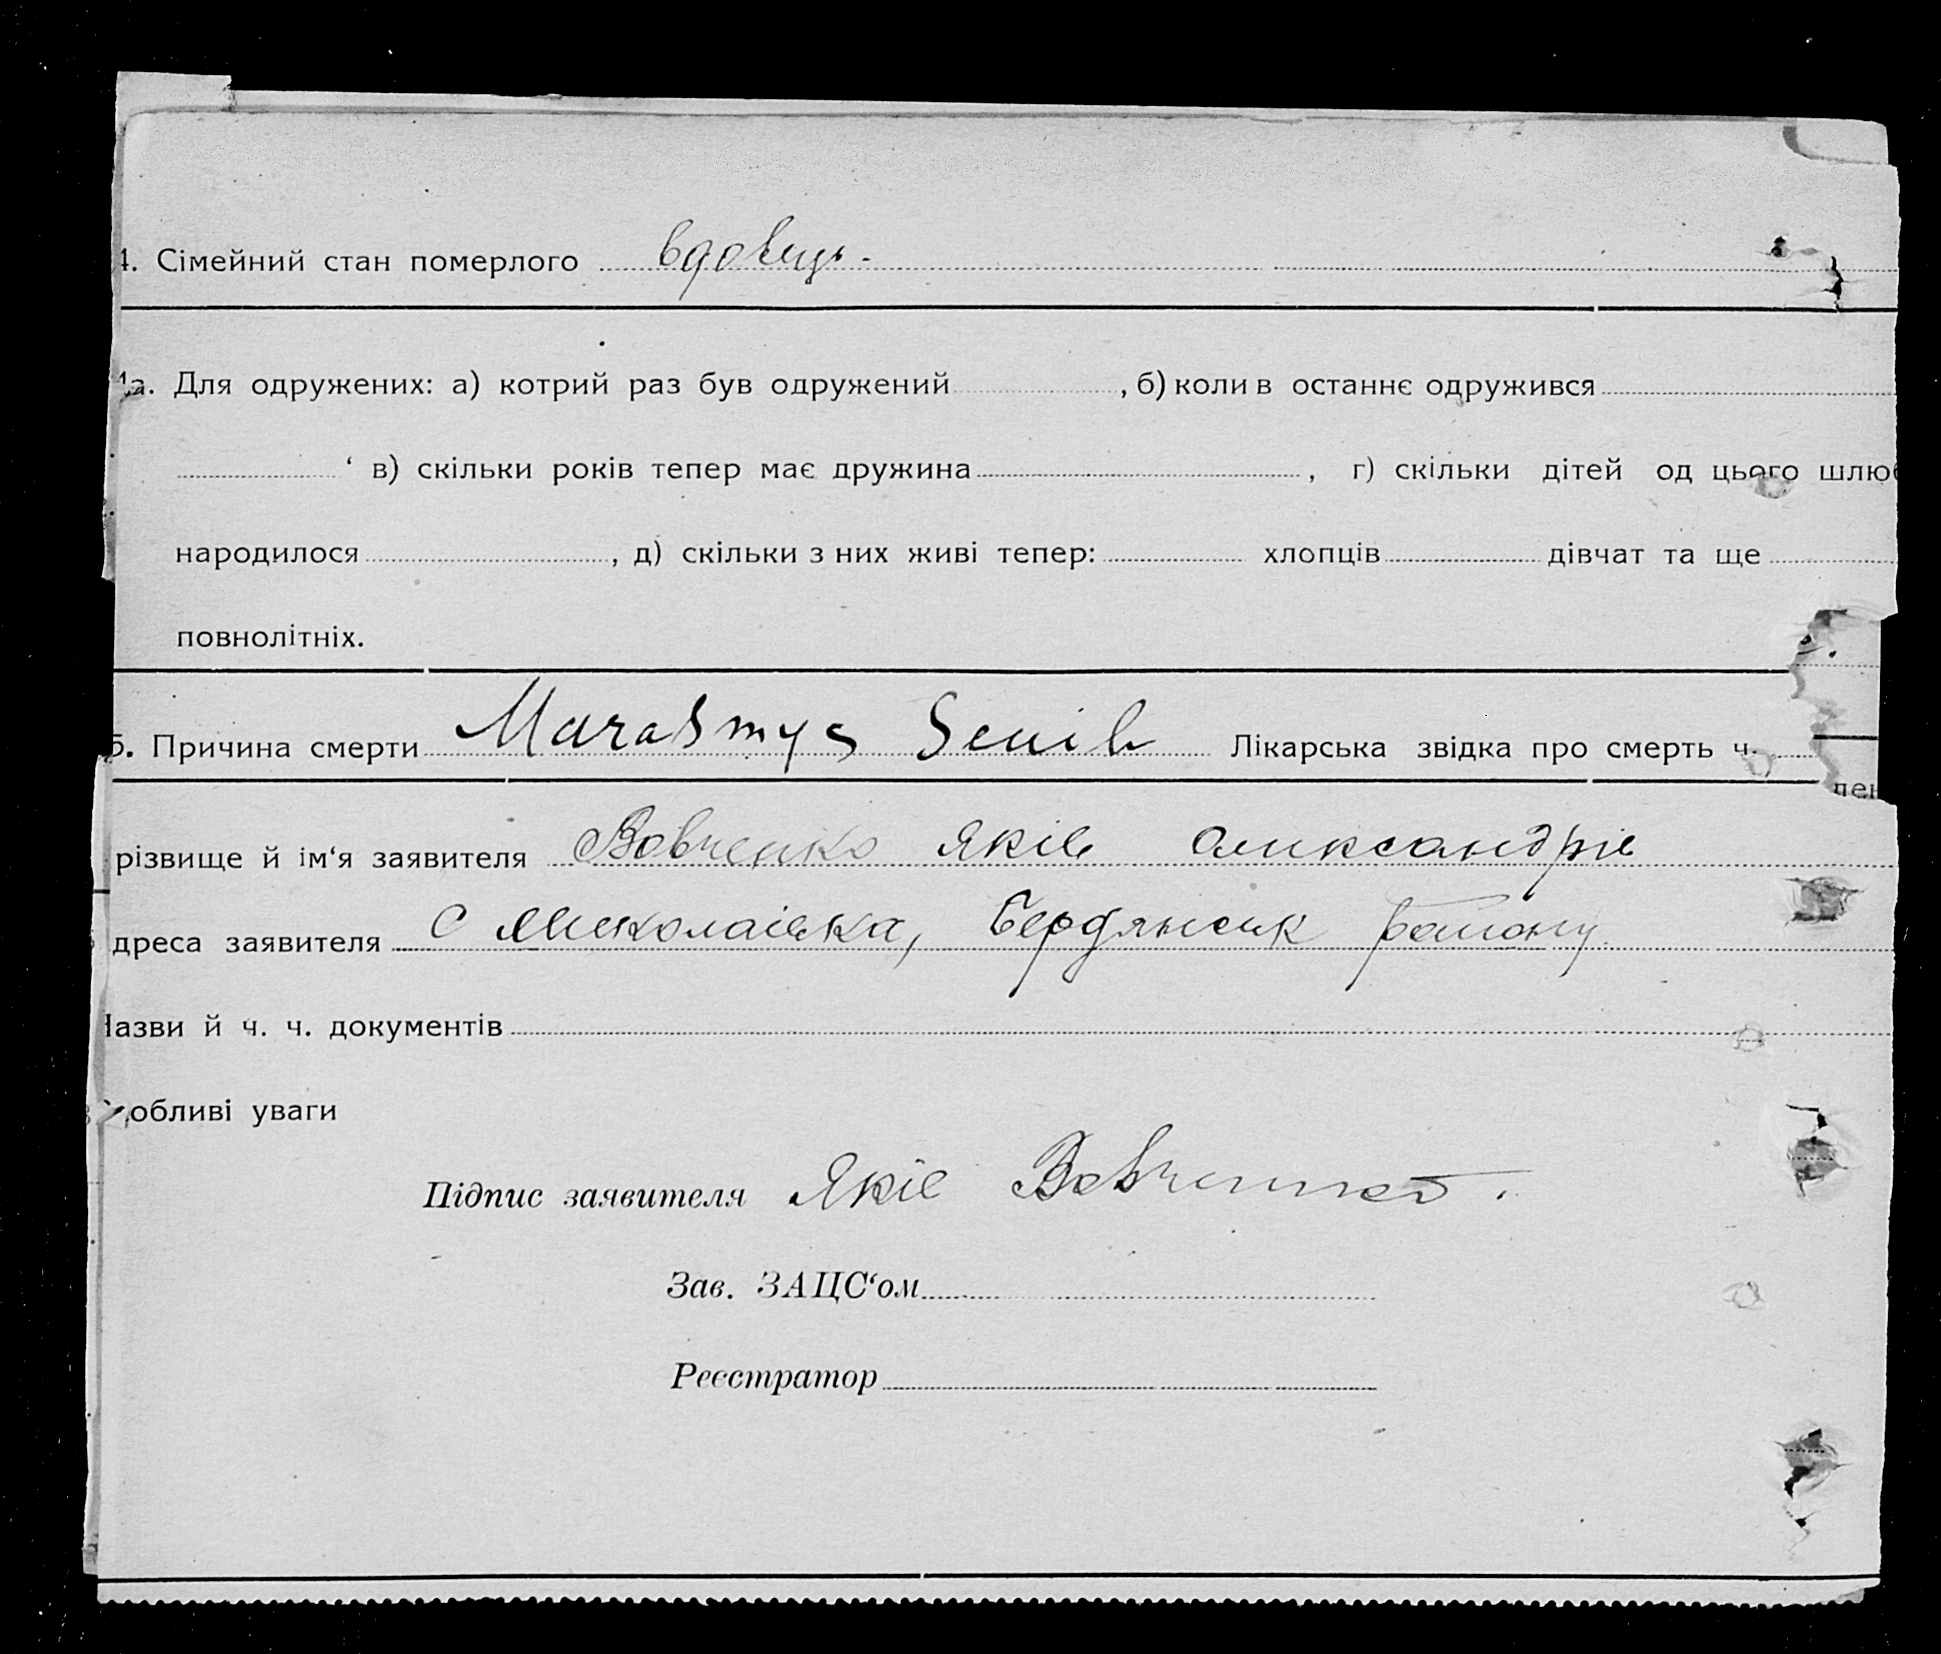 4. Сімейний стан померлого вдовець.
4а. Для одружених: а) котрий раз був одружений , б) коли в останнє одружився
в) скільки років тепер має дружина , г) скільки дітей од цього шлюб
народилося , д) скільки з них живі тепер: хлопців дівчат та ще
повнолітніх.
5. Причина смерти Marasmус Senil Лікарська звідка про смерть ч.
різвище й ім‘я заявителя Вовченко Яків Олександрів
дреса заявителя с Миколаївка, Бердянськ району
Назви й ч. ч. документів
обливі уваги
Підпис заявителя Яків Вовченко.
Зав. ЗАЦС‘ом
Реєстратор